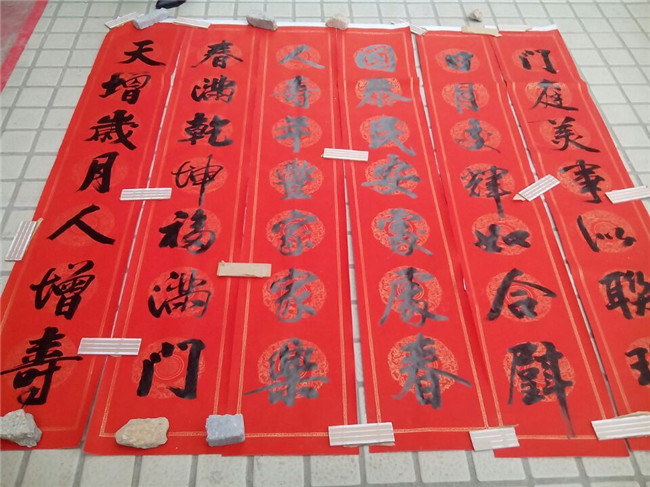 天增歲月人增壽
春滿乾坤福滿門
人壽年豐家家樂
國泰民安處處春
日月交輝如合璧
門庭美事似聯